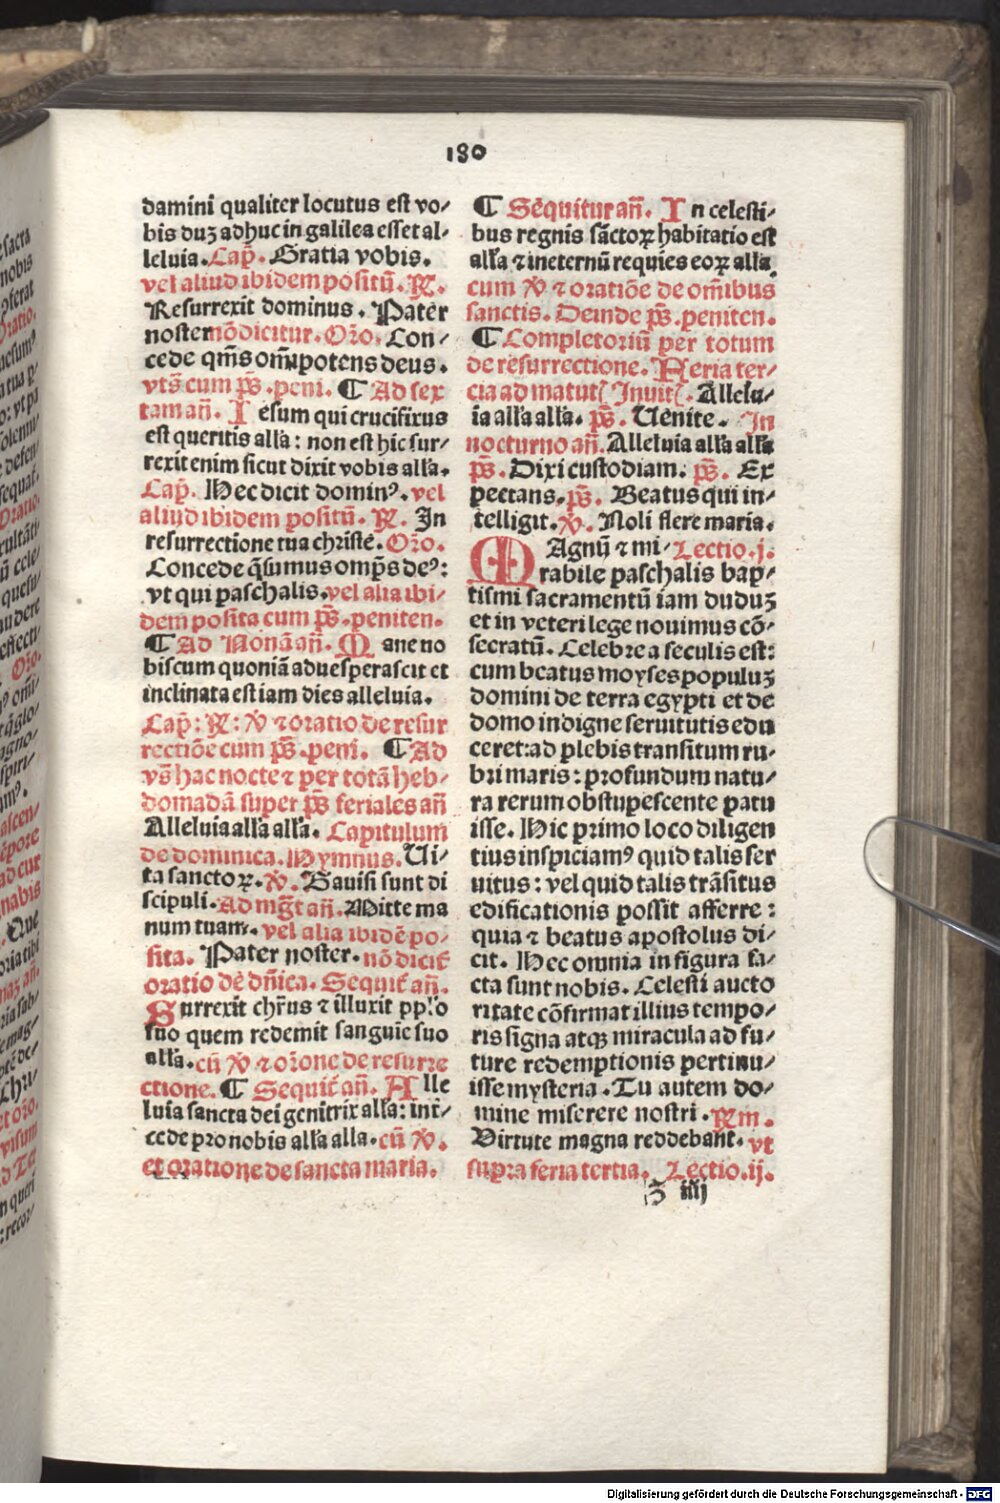 180
damini qualiter locutus est vo/
bis duʒ adhuc in galilea esset al/
leluia. Cap̄. Gratia vobis.
vel aliud ibidem positū. ℟.
Resurrexit dominus. Pater
noster nō dicitur. Or̄o. Con/
cede qm̄s om̄ipotens deus.
vts̄ cum ps̄. peni. ¶ Ad sex
tam an̄. Iesum qui crucifixus
est queritis all'a: non est hic sur/
rexit enim sicut dixit vobis all'a.
Cap̄. Hec dicit dominꝰ. vel
aliud ibidem positū. ℟. In
resurrectione tua christe. Or̄o.
Concede q̄sumus omp̄s deꝰ:
vt qui paschalis. vel alia ibi/
dem posita cum ps̄. peniten.
¶ Ad Nonā an̄. Mane no
biscum quoniā aduesperascit et
inclinata est iam dies alleluia.
Cap̄: ℟: ℣ ⁊ oratio de resur
rectiōe cum ps̄. peni. ¶ Ad
vs̄ hac nocte ⁊ per totā heb/
domadā super ps̄ feriales an̄
Alleluia all'a all'a. Capitulum
de dominica. Hymnus. Ui/
ta sanctoꝝ. ℣. Gauisi sunt di
scipuli. Ad mg̅t an̄. Mitte ma
num tuam. vel alia ibidē po/
sita. Pater noster. nō dicit̄
oratio de dn̄ica. Sequit̄ an̄.
Surrexit chr̄us ⁊ illuxit pp̄l'o
suo quem redemit sanguīe suo
all'a. cū ℣ ⁊ or̄one de resurre
ctione. ¶ Sequit̄ an̄. Alle
luia sancta dei genitrix all'a: int̄/
cede pro nobis all'a alla. cū ℣.
et oratione de sancta maria.
¶ Sēquitur an̄. In celesti/
bus regnis sāctoꝝ habitatio est
all'a ⁊ in eternū requies eoꝝ all'a
cum ℣ ⁊ oratiōe de om̄ibus
sanctis. Deinde ps̄. peniten.
¶ Completoriū per totum
de resurrectione. Feria ter/
cia ad matut̄ Inuit̄. Allelu/
ia all'a all'a. ps̄. Uenite. In
nocturno an̄. Alleluia all'a all'a
ps̄. Dixi custodiam. ps̄. Ex
pectans. ps̄. Beatus qui in/
telligit. ℣. Noli flere maria.
MAgnū ⁊ mi/ Lectio. j.
rabile paschalis bap/
tismi sacramentū iam duduʒ
et in veteri lege nouimus cō/
secratū. Celebre a seculis est:
cum beatus moyses populuʒ
domini de terra egypti et de
domo indigne seruitutis edu
ceret: ad plebis transitum ru/
bri maris: profundum natu/
ra rerum obstupescente patu
isse. Hic primo loco diligen
tius inspiciamꝰ quid talis ser
uitus: vel quid talis trāsitus
edificationis possit afferre:
quia ⁊ beatus apostolus di/
cit. Hec omnia in figura fa/
cta sunt nobis. Celesti aucto
ritate cōfirmat illius tempo/
ris signa atqꝫ miracula ad fu/
ture redemptionis pertinu/
isse mysteria. Tu autem do/
mine miserere nostri. ℟m.
Virtute magna reddebant. vt
supra feria tertia. Lectio. ij.
ʒ iiij
Digitalisierung gefördert durch die Deutsche Forschungsgemeinschaft - DFG